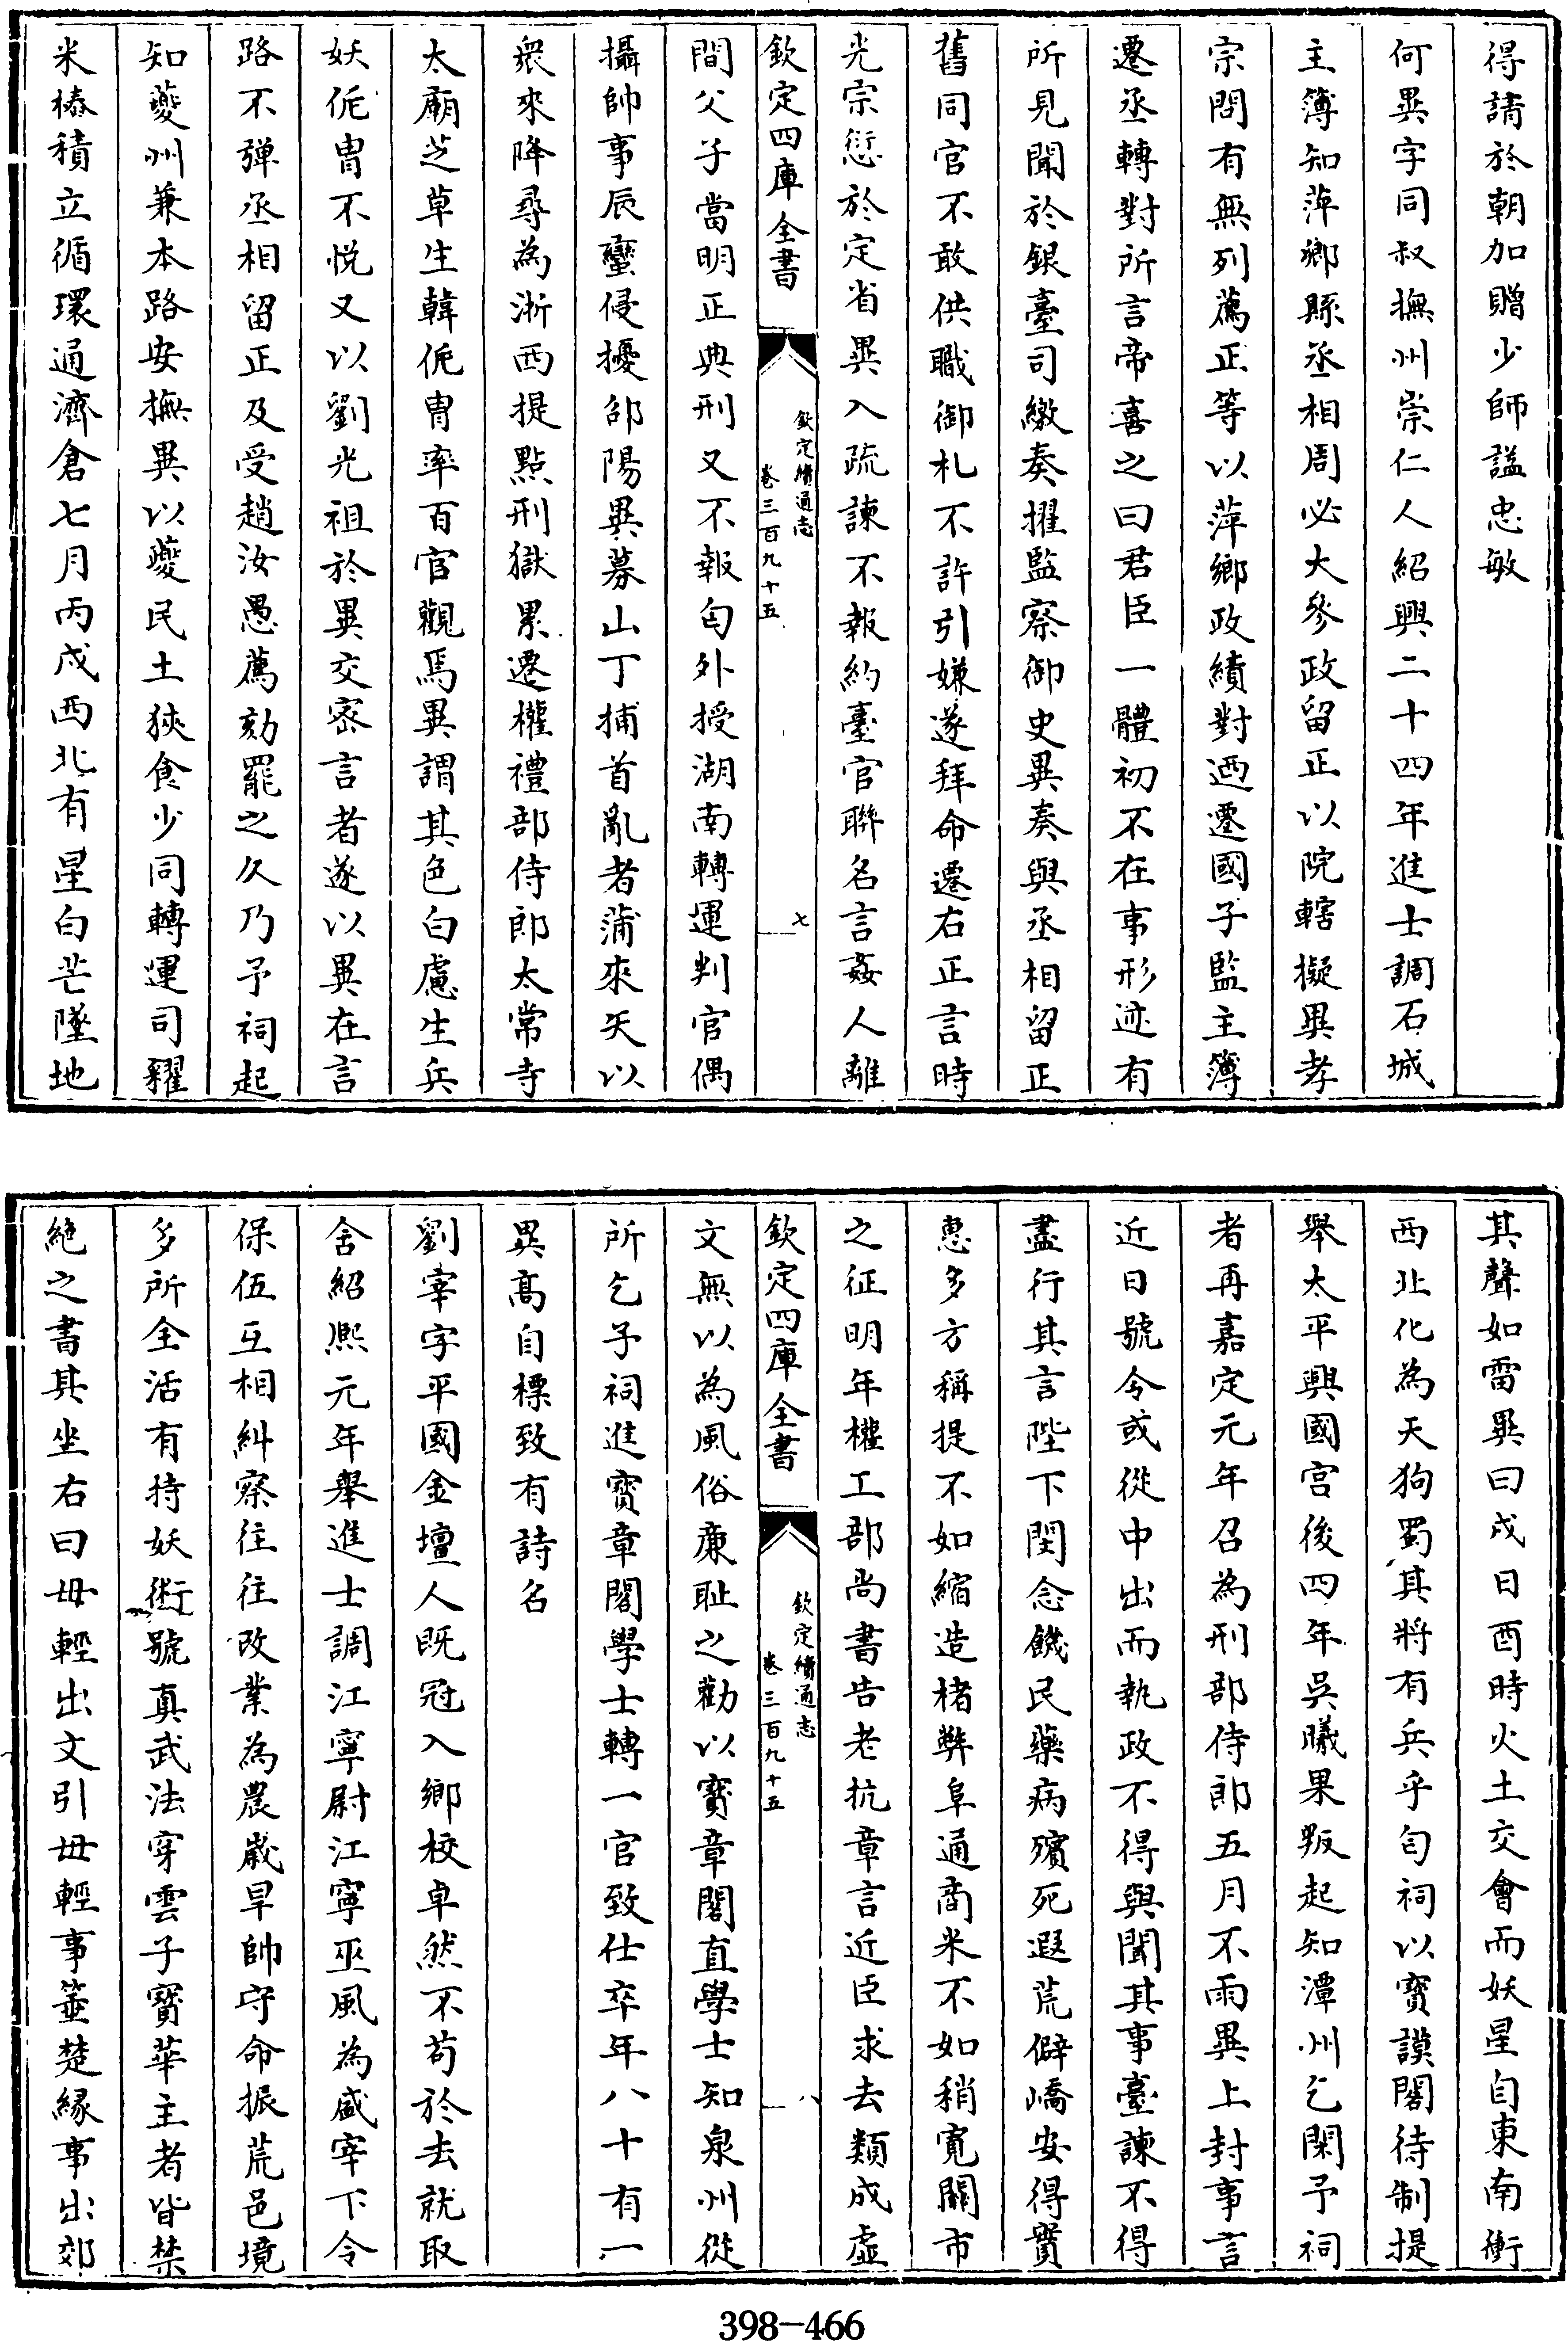 得請於朝加贈少師謚忠敏
何異字同叔撫州崇仁人紹興二十四年進士調石城
主簿知萍鄉縣丞相周必大參政留正以院轄擬異孝
宗問有無列薦正等以萍鄉政績對迺遷國子監主簿
遷丞轉對所言帝喜之曰君臣一體初不在事形迹有
所見聞於銀臺司繳奏擢監察御史異奏與丞相留正
舊同官不敢供職御札不許引嫌遂拜命遷右正言時
光宗愆於定省異入疏諫不報約臺官聯名言姦人離
欽定四庫全書
欽定續通志
卷三百九十五
七
間父子當明正典刑又不報匄外授湖南轉運判官偶
攝帥事辰蠻侵擾邵陽異募山丁捕首亂者蒲來矢以
衆來降尋為浙西提點刑獄累遷權禮部侍郎太常寺
太廟芝草生韓侂胄率百官觀焉異謂其色白慮生兵
妖侂胄不悅又以劉光祖於異交密言者遂以異在言
路不彈丞相留正及受趙汝愚薦劾罷之久乃予祠起
知夔州兼本路安撫異以夔民土狹食少同轉運司糴
米樁積立循環通濟倉七月丙戌西北有星白芒墜地
其聲如雷異曰戌日酉時火土交會而妖星自東南衝
西北化為天狗蜀其將有兵乎匄祠以寶謨閣待制提
舉太平興國宮後四年吳曦果叛起知潭州乞閑予祠
者再嘉定元年召為刑部侍郎五月不雨異上封事言
近日號令或從中出而執政不得與聞其事臺諫不得
盡行其言陛下閔念饑民藥病殯死遐荒僻嶠安得實
惠多方稱提不如縮造楮幣阜通商米不如稍寬關市
之征明年權工部尚書告老抗章言近臣求去類成虛
欽定四庫全書
欽定續通志
卷三百九十五
八
文無以為風俗廉恥之勸以寶章閣直學士知泉州從
所乞予祠進寶章閣學士轉一官致仕卒年八十有一
異高自標致有詩名
劉宰字平國金壇人既冠入鄉校卓然不苟於去就取
舍紹熙元年舉進士調江寧尉江寧巫風為盛宰下令
保伍互相糾察往往改業為農歲旱帥守命振荒邑境
多所全活有持妖術號真武法穿雲子寶華主者皆禁
絕之書其坐右曰毋輕出文引毋輕事箠楚緣事出郊
398-466